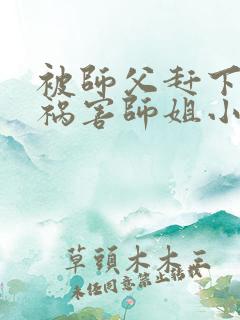 被師父赶下
祸害師姐小
草頭木木王
未经同意禁止转载